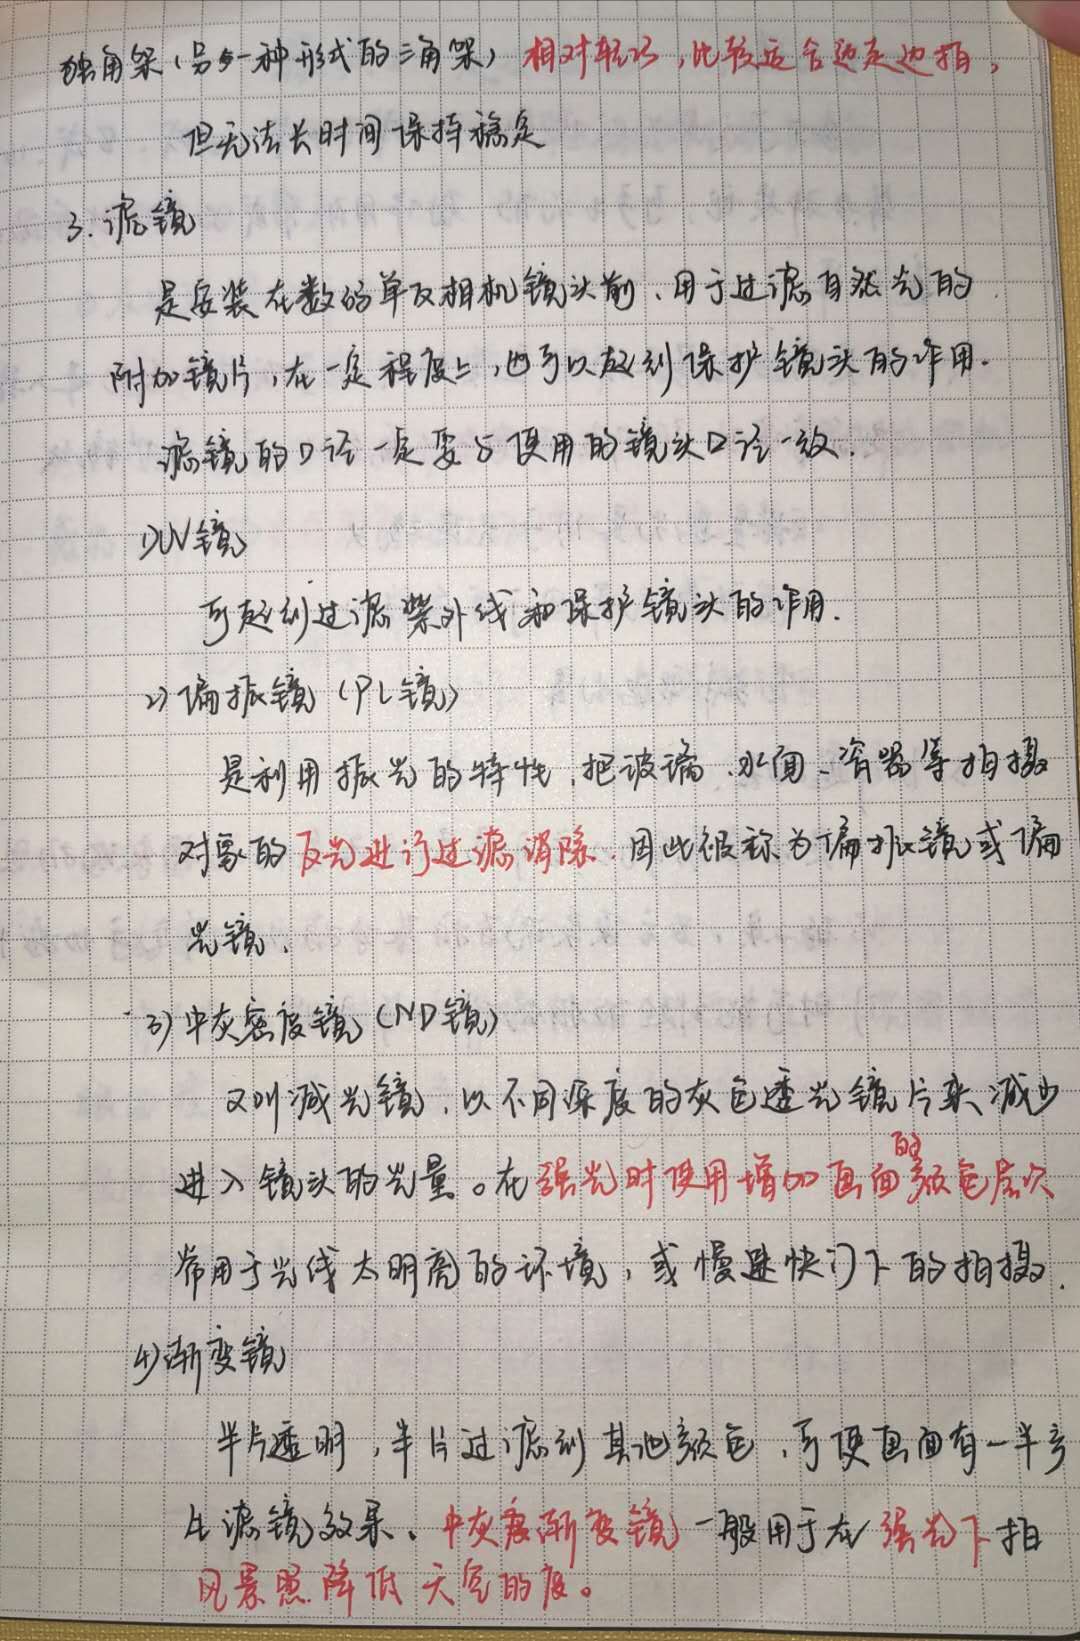 独角架(另一种形式的三角架) 相对轻巧,比较适合边走边拍,
但无法长时间保持稳定
3.滤镜
是安装在数码单反相机镜头前、用于过滤自然光的
附加镜片,在一定程度上,也可以起到保护镜头的作用.
滤镜的口径一定要与使用的镜头口径一致.
1)UV镜
可起到过滤紫外线和保护镜头的作用.
2)偏振镜(PL镜)
是利用振光的特性,把玻璃、水面、容器等拍摄
对象的反光进行过滤消除.因此被称为偏振镜或偏
光镜.
3)中灰密度镜(ND镜)
又叫减光镜,以不同深度的灰色透光镜片来减少
进入镜头的光量。在强光时使用增加画面的颜色层次
常用于光线太明亮的环境,或慢速快门下的拍摄.
4)渐变镜
半片透明,半片过滤到其他颜色,可使画面有一半产
生滤镜效果.中灰度渐变镜一般用于在强光下拍
风景照降低天空的度。